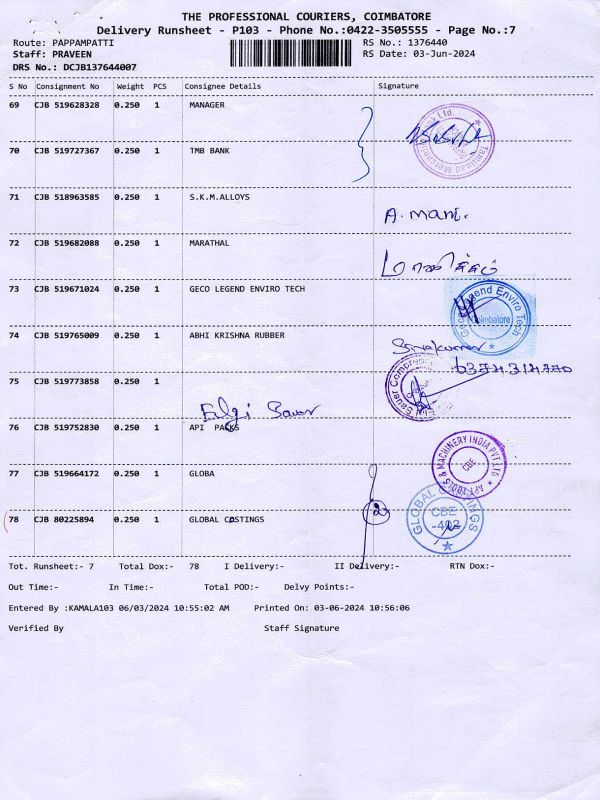 THE PROFESSIONAL COURIERS, COIMBATORE
Delivery Runsheet - P103 - Phone No.:0422-3505555 - Page No.:7
Route: PAPPAMPATTI RS No.: 1376440
Staff: PRAVEEN RS Date: 03-Jun-2024
DRS No.: DCJB137644007
S No Consignment No Weight PCS Consignee Details Signature
69 CJB 519628328 0.250 1 MANAGER
70 CJB 519727367 0.250 1 TMB BANK
71 CJB 518963585 0.250 1 S.K.M.ALLOYS
A. mani.
72 CJB 519682088 0.250 1 MARATHAL
73 CJB 519671024 0.250 1 GECO LEGEND ENVIRO TECH
Geco Legend Enviro Tech
Coimbatore
74 CJB 519765009 0.250 1 ABHI KRISHNA RUBBER
Sivakumar
75 CJB 519773858 0.250 1
Sauer Compressors
76 CJB 519752830 0.250 1 API PACKS
& MACHINERY INDIA PVT LTD
CBE
77 CJB 519664172 0.250 1 GLOBA
78 CJB 80225894 0.250 1 GLOBAL COSTINGS
2
GLOBAL CASTINGS
CBE
-402
Tot. Runsheet:- 7 Total Dox:- 78 I Delivery:- II Delivery:- RTN Dox:-
Out Time:- In Time:- Total POD:- Delvy Points:-
Entered By :KAMALA103 06/03/2024 10:55:02 AM Printed On: 03-06-2024 10:56:06
Verified By Staff Signature